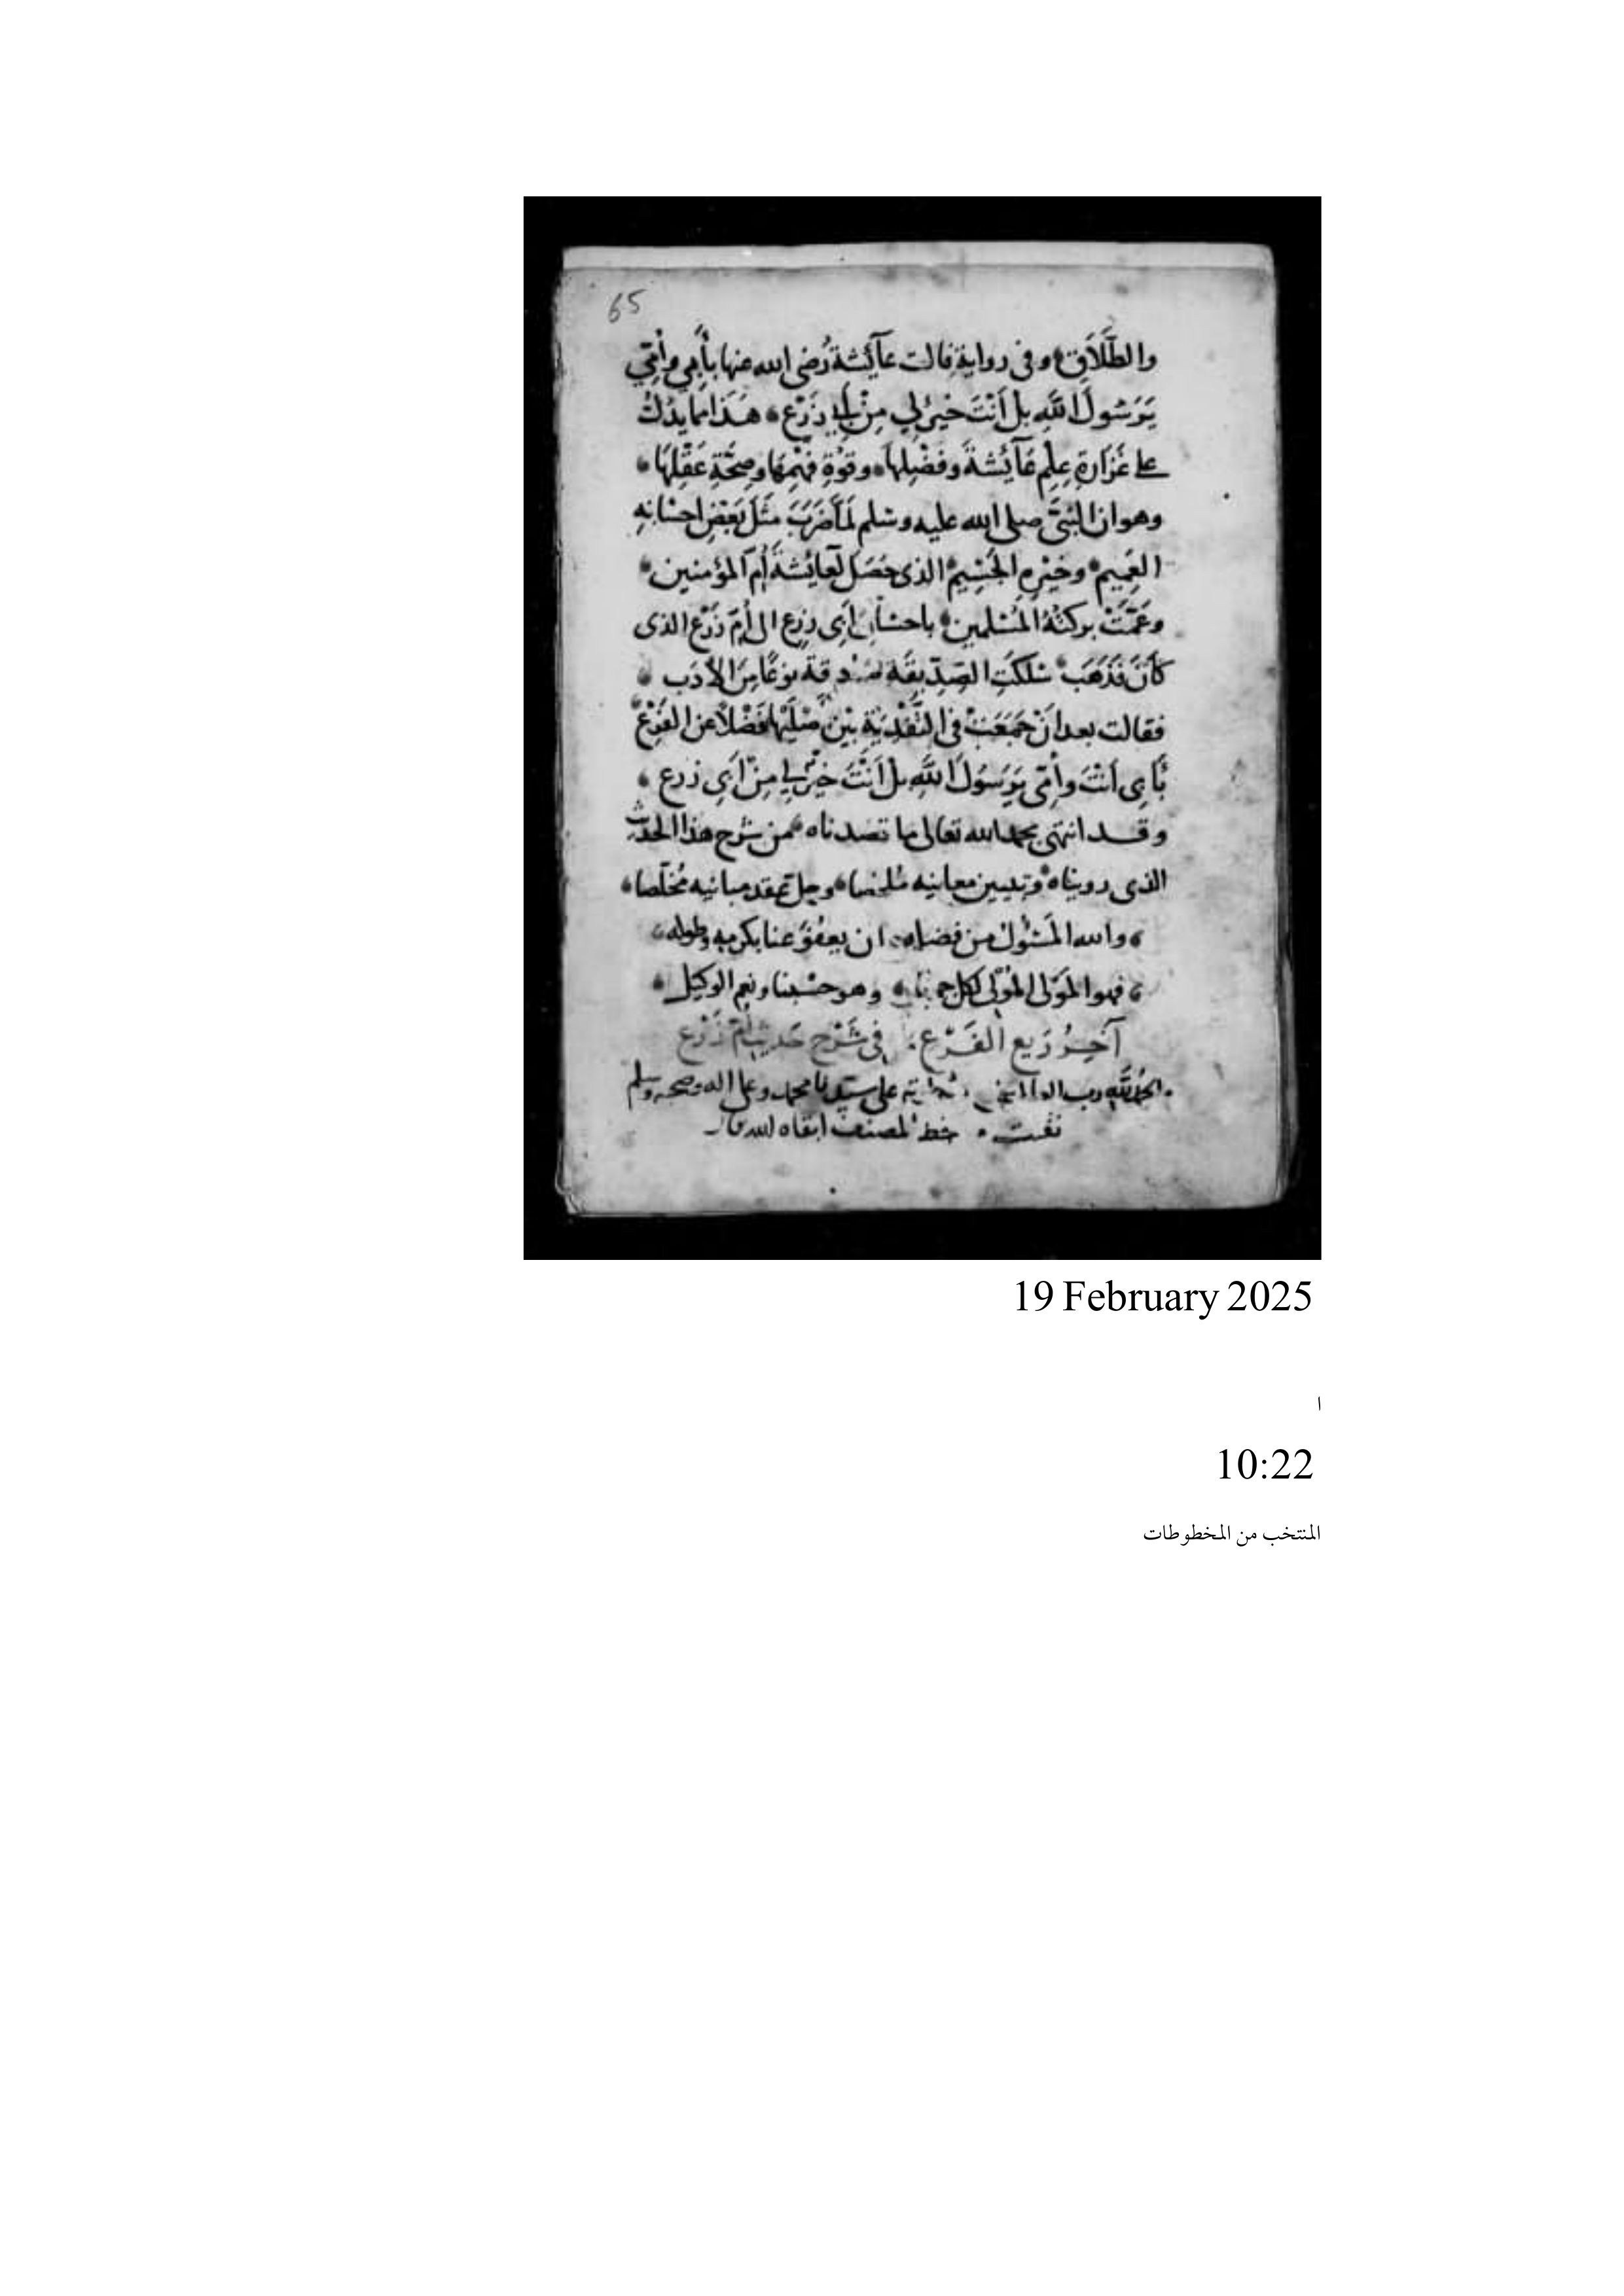 65
والطَّلَاقِ وفى رواية قالت عآئشة رضى الله عنها بأبى وأمّى
يَرَسُولَ اللَّهِ بل أَنْتَ خيرٌ لِي مِنْ أبِي زَرْعٍ هَذَا مما يدُلُّ
على غَزَارةِ عِلْمِ عَآئشةَ وفَضْلِهَا وقوَّةِ فَهْمِهَا وصِحَّةِ عَقْلِهَا
وهو ان النبيَّ صلى الله عليه وسلم لَمَّا ضَرَبَ مَثَلَ بَعْضِ احسَانهِ
العَمِيم وخَيْرِهِ الجَسِيم الذى حَصَل لعَائشةَ أُمّ المؤمنين
وعَمَّتْ بركتُهُ المُسْلمين باحسَان أبِى زرع الى أُمّ زَرْع الذى
كَأنَ فَذَهَبَ سَلَكَتِ الصِّدِّيقَة نوعًا مِنَ الأدَب
فقالت بعد انْ جَمَعَتْ فى التَّفْدِيَةِ بيْن أصْلَيْها فَضْلًا عن الفَرْع
بِأَبِى أنتَ وأُمّى يَرَسُولَ اللَّهِ بل أَنْتَ خيْرٌ لِي مِنْ أبِى زرع
وقد انتهى بحمد الله تعالى ما قصدناه من شرح هذا الحديث
الذى رويناه وتبيين معانيه مُلخصا وحل عقد مبانيه مُخلّصا
والله المَسْئُول من فضله ان يعفُوَ عنا بكرمه وطوله
فهو المَوْلى المُوْلى لكل وهو حسْبنا ونعم الوكيل
آخِرُ رَيْع الفَرْع فى شَرْح حَديث أُمّ زَرْع
الحمد لله رب العالمين على سيّدنا محمد وعلى اله وصحبه وسلم
خط المصنف ابقاه الله
19 February 2025
ا
10:22
المنتخب من المخطوطات